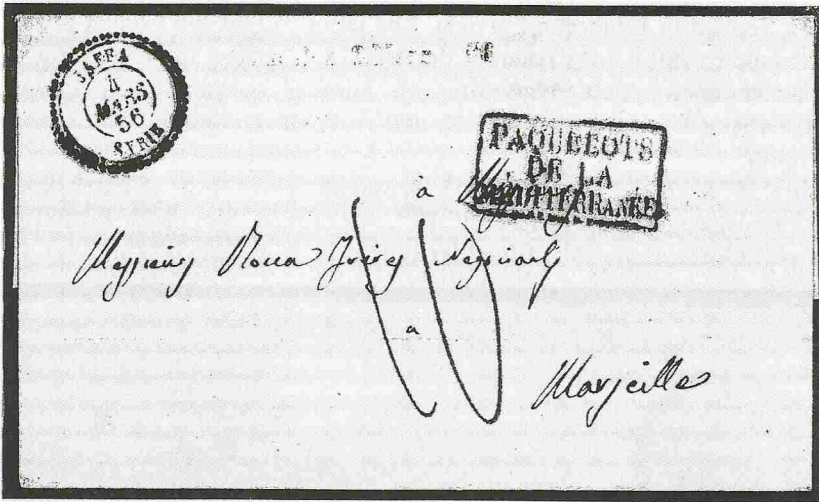 JAFFA
4
MARS
56
SYRIE
PAQUEBOTS
DE LA
MÉDITERRANÉE
a
Messieurs Rocca frères Neveux
a
Marseille